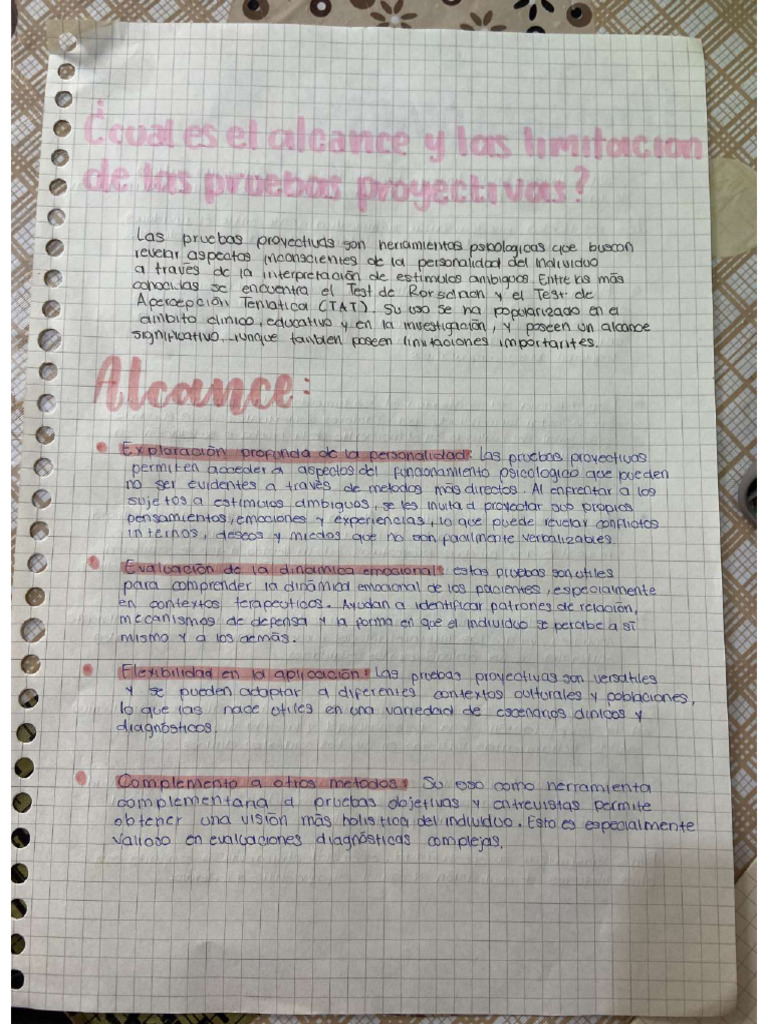 ¿Cual es el alcance y las limitacion
de las pruebas proyectivas?
Las pruebas proyectivas son herramientas psicologicas que buscan
revelar aspectos inconscientes de la personalidad del individuo
a través de la interpretación de estimulos ambiguos. Entre las más
conocidas se encuentra el Test de Rorschach y el Test de
Apercepción Tematica (TAT). Su uso se ha popularizado en el
ambito clinico, educativo y en la investigación, y poseen un alcance
significativo, aunque tambien poseen limitaciones importantes.
Alcance:
• Exploración profunda de la personalidad: las pruebas proyectivas
permiten acceder a aspectos del funcionamiento psicologico que pueden
no ser evidentes a través de metodos más directos. Al enfrentar a los
sujetos a estimulos ambiguos, se les invita a proyectar sus propios
pensamientos, emociones y experiencias, lo que puede revelar conflictos
internos, deseos y miedos que no son facilmente verbalizables.
• Evaluación de la dinamica emocional: estas pruebas son utiles
para comprender la dinámica emocional de los pacientes, especialmente
en contextos terapeuticos. Ayudan a identificar patrones de relación,
mecanismos de defensa y la forma en que el individuo se percibe a sí
mismo y a los demás.
• Flexibilidad en la aplicación: las pruebas proyectivas son versatiles
y se pueden adaptar a diferentes contextos culturales y poblaciones,
lo que las hace utiles en una variedad de escenarios clinicos y
diagnósticos.
• Complemento a otros metodos: Su uso como herramienta
complementaria a pruebas objetivas y entrevistas permite
obtener una visión más holistica del individuo. Esto es especialmente
valioso en evaluaciones diagnósticas complejas.